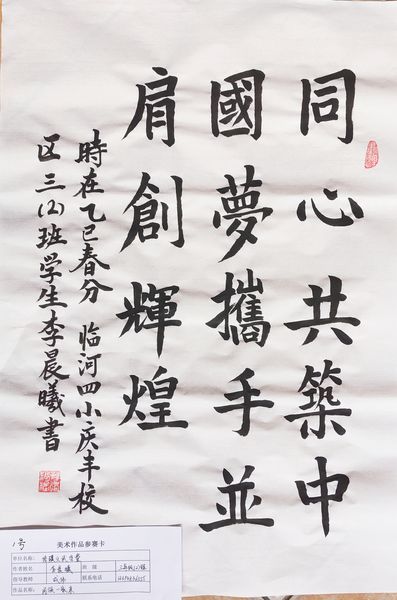 同心共築中
國夢攜手並
肩創輝煌
時在乙巳春分 临河四小庆丰校
区三(2)班学生李晨曦書
1号
美术作品参赛卡
单位名称:
作者姓名 李晨曦 班级
指导教师 联系电话
作品名称: